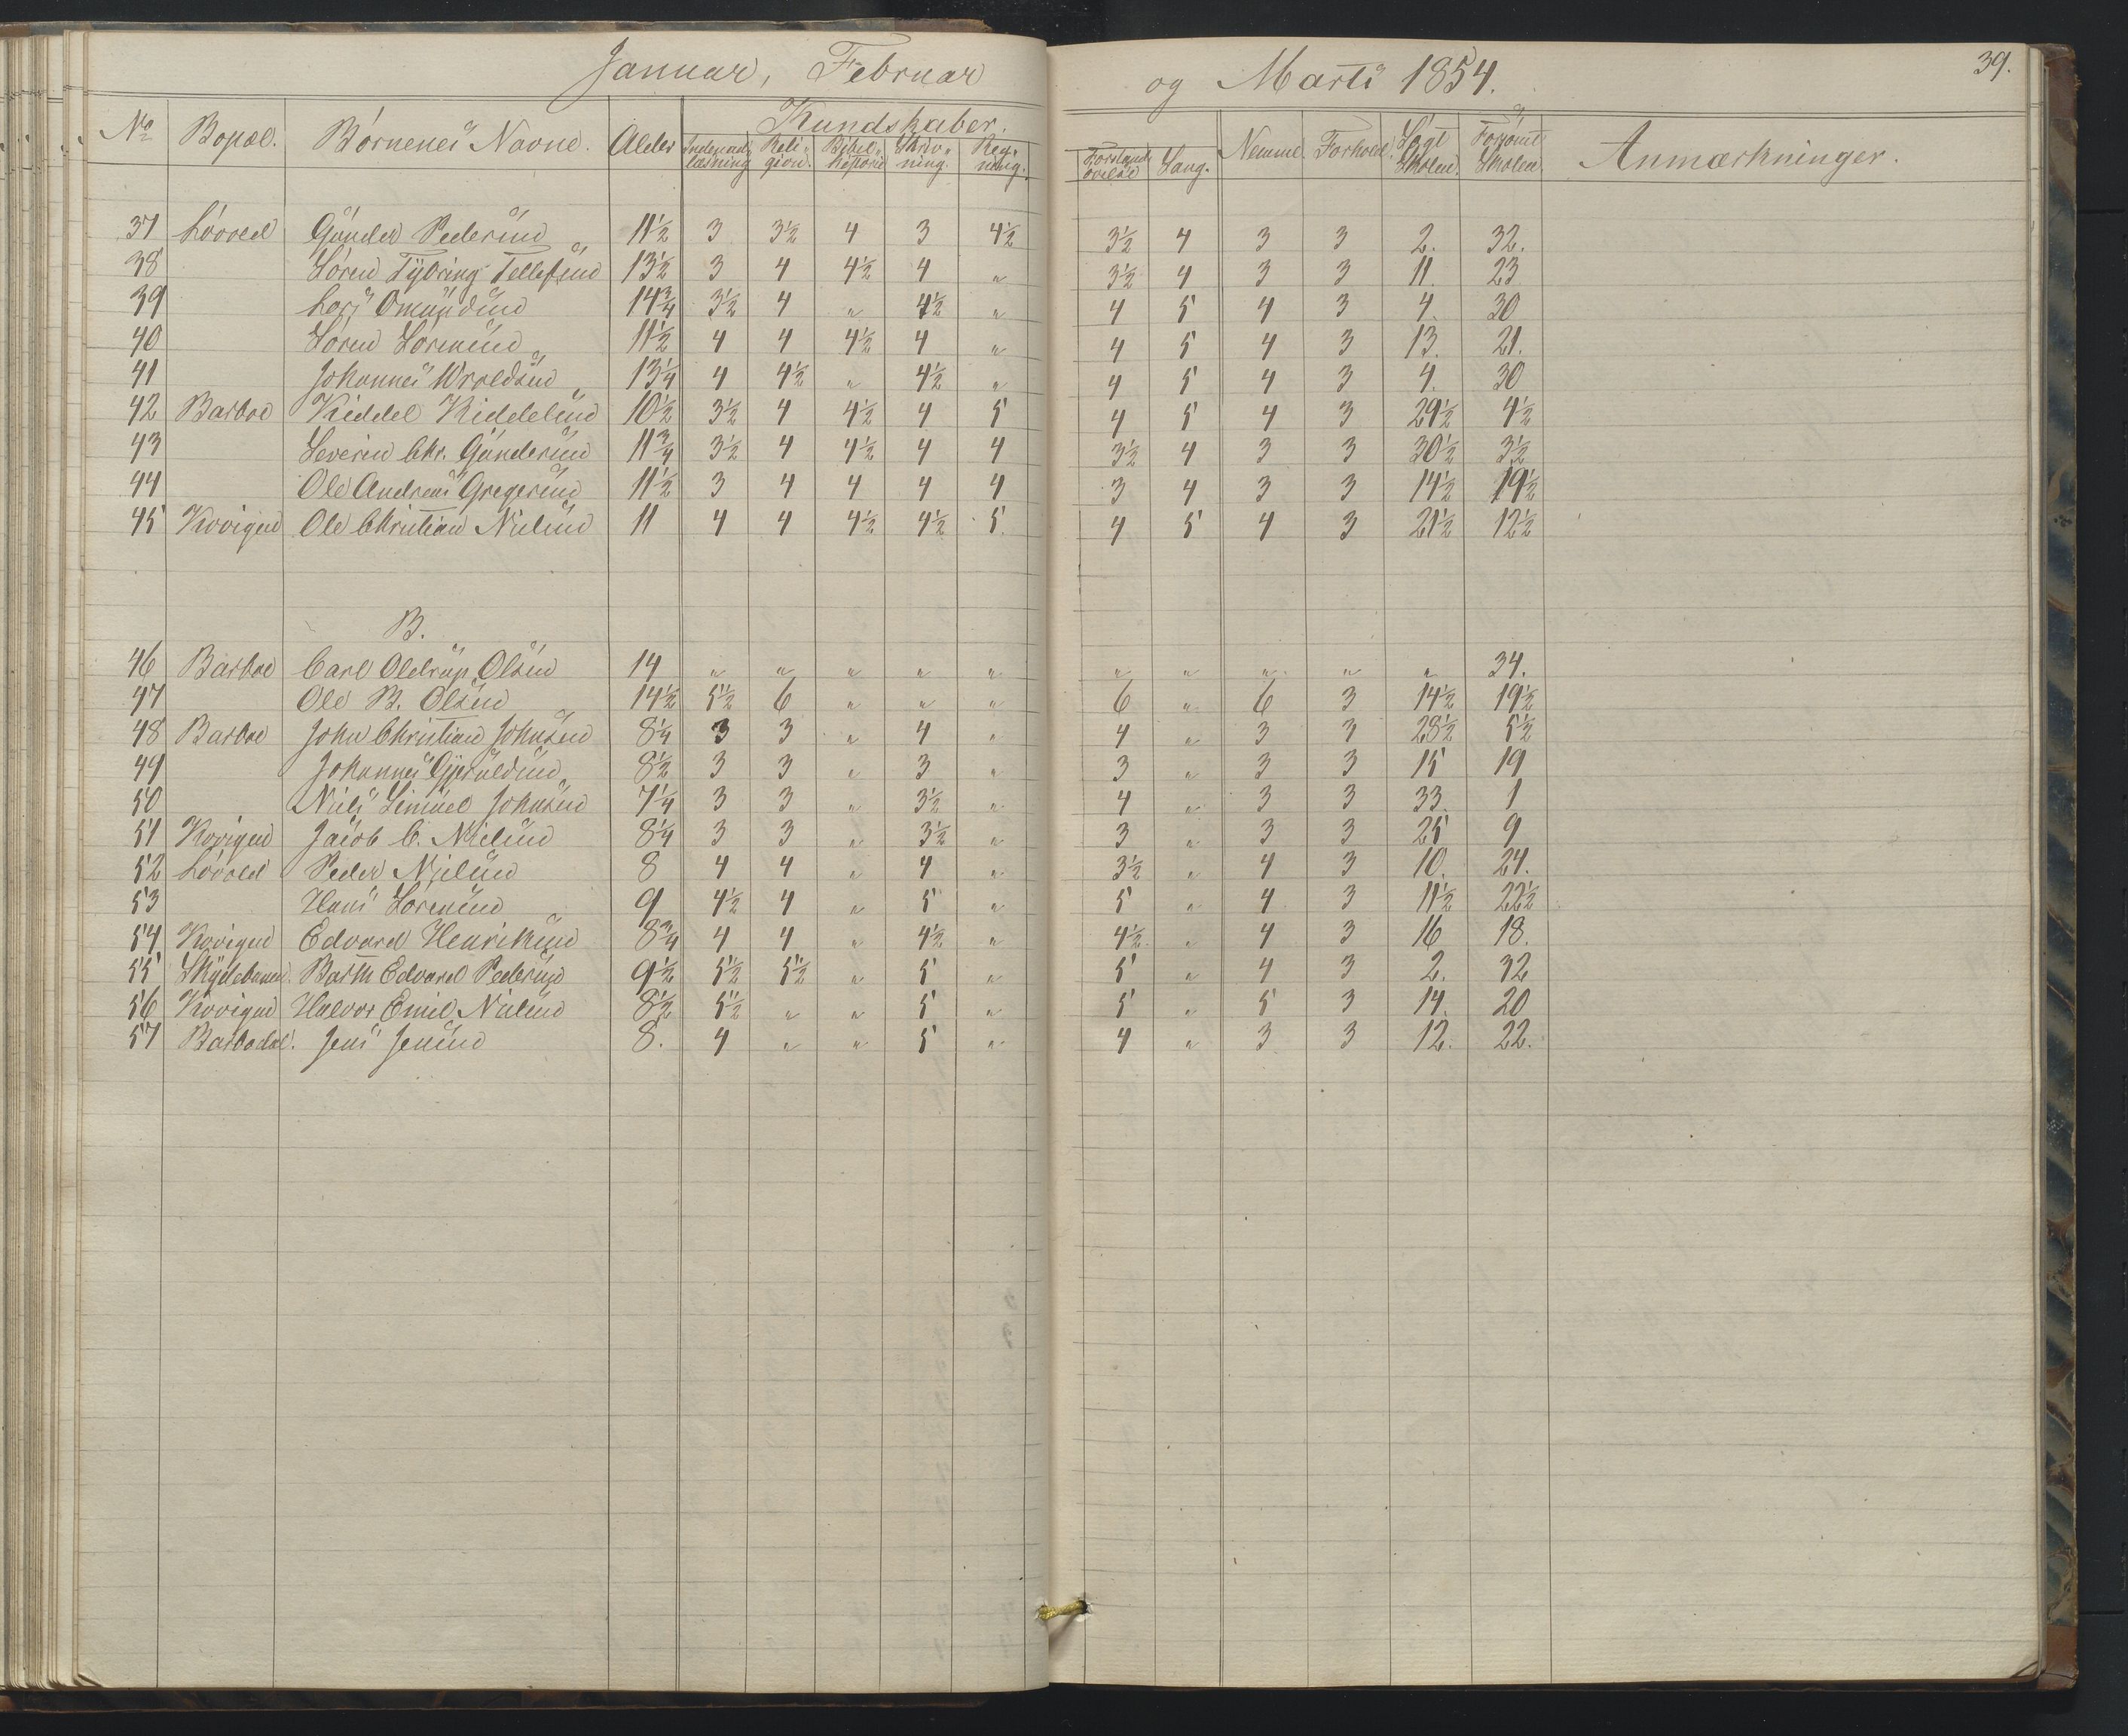 Januar, Februar og Marts 1854. 39.
Kundskaber.
No Bopæl. Børnenes Navne. Alder Indenad læsning Reli- gion. Bibel- historie Skriv- ning. Reg- ning. Forstands øvelse Sang. Nemme Forhold. Søgt Skolen. Forsømt Skolen. Anmærkninger.
37 Løvold Gunder Pedersen 11½ 3 3½ 4 3 4½ 3½ 4 3 3 2. 32.
38 Søren Tybring Tellefsen 13½ 3 4 4½ 4 „ 3½ 4 3 3 11. 23
39 Lars Omundsen 14¾ 3½ 4 „ 4½ „ 4 5 4 3 4. 30
40 Søren Sørensen 11½ 4 4 4½ 4 „ 4 5 4 3 13. 21.
41 Johannes Wroldsen 13¼ 4 4½ „ 4½ „ 4 5 4 3 4. 30
42 Barboe Kiddel Kiddelsen 10½ 3½ 4 4½ 4 5 4 5 4 3 29½ 4½
43 Severin Chr. Gundersen 11¾ 3½ 4 4½ 4 4 3½ 4 3 3 30½ 3½
44 Ole Andreas Gregersen 11½ 3 4 4 4 4 3 4 3 3 14½ 19½
45 Kovigen Ole Christian Nielsen 11 4 4 4½ 4½ 5. 4 5 4 3 21½ 12½
B.
46 Barboe Carl Oldrup Olsen 14 „ „ „ „ „ „ „ „ „ „ 34.
47 Ole B. Olsen 14½ 5½ 6 „ „ „ 6 „ 6 3 14½ 19½
48 Barboe John Christian Johnsen 8¼ 3 3 „ 4 „ 4 „ 3 3 28½ 5½
49 Johannes Gjeruldsen 8½ 3 3 „ 3 „ 3 „ 3 3 15 19
50 Niels Simuel Johnsen 7¼ 3 3 „ 3½ „ 4 „ 3 3 33. 1
51 Kovigen Jacob C. Nielsen 8¼ 3 3 „ 3½ „ 3 „ 3 3 25 9
52 Løvold Peder Nielsen 8 4 4 „ 4 „ 3½ „ 4 3 10. 24.
53 Hans Sørensen 9 4½ 4 „ 5 „ 5 „ 4 3 11½ 22½
54 Kovigen Edvard Henriksen 8¾ 4 4 „ 4½ „ 4½ „ 4 3 16 18.
55 Skydebanen. Barth Edvard Pedersen 9½ 5½ 5½ „ 5 „ 5 „ 4 3 2. 32
56 Kovigen Halvor Emil Nielsen 8½ 5½ „ „ 5 „ 5 „ 5 3 14. 20
57 Barbodal. Jens Jensen 8. 4 „ „ 5 „ 4 „ 3 3 12. 22.